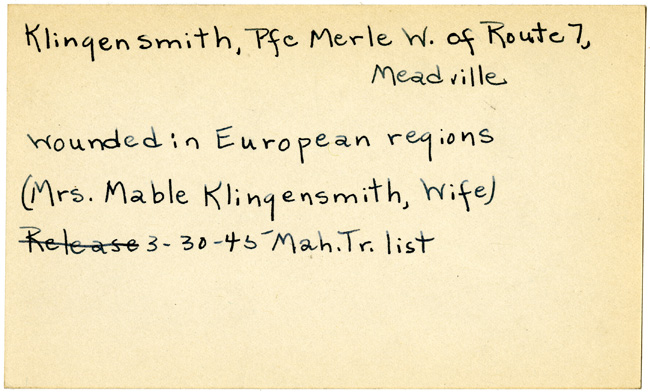 Klingensmith, Pfc Merle W. of Route 7,
Meadville
wounded in European regions
(Mrs. Mable Klingensmith, Wife)
Release 3-30-45 Mah. Tr. list